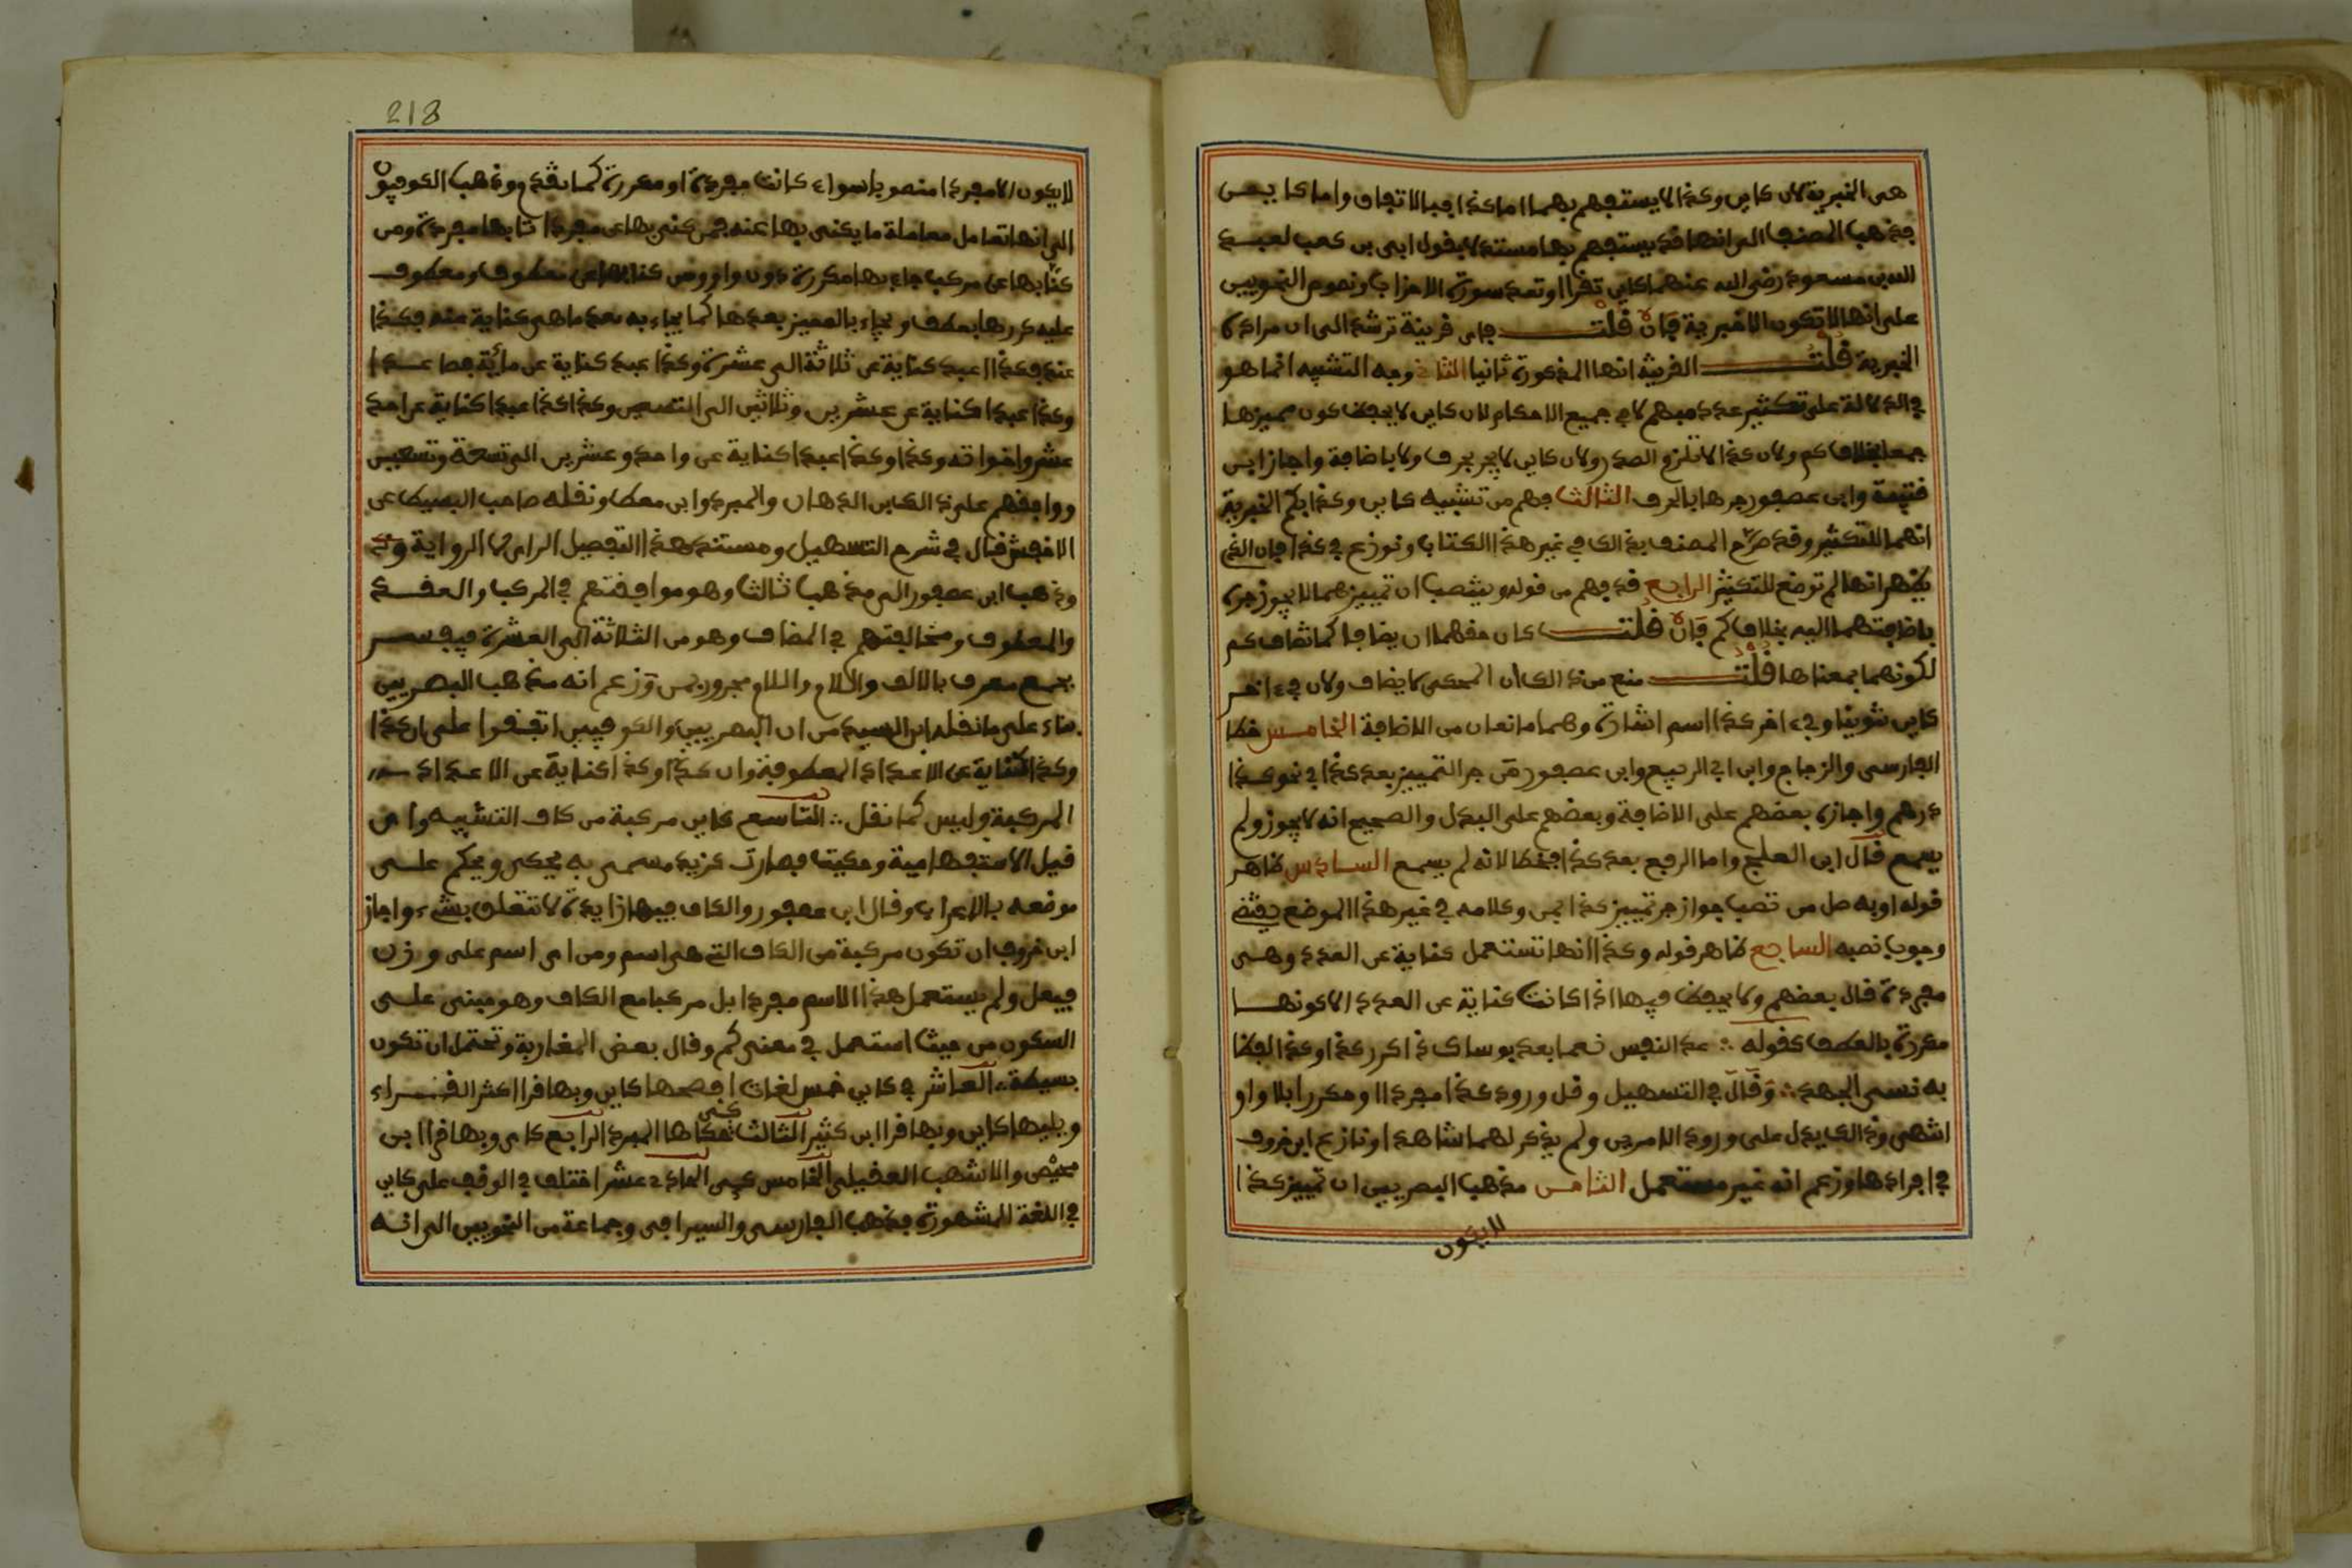 هي الخبرية لان كاين وكذا لا يستفهم بهما اما كذا فبالاتفاق واما كاين
فذهب المصنف الى انها قد يستفهم بها مستدلا بقول ابي بن كعب لعبد
الله بن مسعود رضي الله عنهما كاين تقرا او تعد سورة الاحزاب ونصوص النحويين
على انها لا تكون الا خبرية فان قلت فاي قرينة ترشد الى ان مراده
الخبرية قلت القرينة انها المذكورة ثانيا الثاني وجه التشبيه انما هو
في الدلالة على تكثير عدد مبهم لا في جميع الاحكام لان كاين لا يحفظ كون مميزها
جمعا بخلاف كم ولان كذا لا تلزم الصدر ولان كاين لا يجر بحرف ولا باضافة واجاز ابن
قتيبة وابن عصفور جرها بالحرف الثالث فهم من تشبيه كاين وكذا بكم الخبرية
انهما للتكثير وقد صرح المصنف بذالك في غير هذا الكتاب ونوزع في كذا فان الذي
يظهر انها لم توضع للتكثير الرابع قد فهم من قوله وينتصب ان تمييزهما لا يجوز جره
باضافتهما اليه بخلاف كم فان قلت كان حقهما ان يضافا كما تضاف كم
لكونهما بمعناها قلت منع من ذالك ان المحكي لا يضاف ولان في ءاخر
كاين تنوينا وفي ءاخر كذا اسم اشارة وهما مانعان من الاضافة الخامس خطا
الفارسي والزجاج وابن ابي الربيع وابن عصفور من جر التمييز بعد كذا في نحو كذا
درهم واجازه بعضهم على الاضافة وبعضهم على البدل والصحيح انه لا يجوز ولم
يسمع قال ابن العلج واما الرفع بعد كذا فخطا لانه لم يسمع السادس ظاهر
قوله او به صل من تصب جواز جر تمييز كذا بمن وكلامه في غير هذا الموضع يقتضي
وجوب نصبه السابع ظاهر قوله وكذا انها تستعمل كناية عن العدد وهي
مفردة قال بعضهم ولا يحفظ فيها اذا كانت كناية عن العدد الا كونها
مكررة بالعطف كقوله عد النفس نعما بعد بوساك ذاكر كذا وكذا لطفا
به نسي الجهد وقال في التسهيل وقل ورود كذا مفردا او مكررا بلا واو
انتهى وذالك يدل على ورود الامرين ولم يذكر لهما شاهدا ونازع ابن خروف
في افرادها وزعم انه غير مستعمل الثامن مذهب البصريين ان تمييز كذا
لا يكون
218
لا يكون الا مفردا منصوبا سواء كانت مفردة او مكررة كما تقدم وذهب الكوفيون
الى انها تعامل معاملة ما يكنى بها عنه فمن كنى بها عن مفرد اتى بها مفردة ومن
كنى بها عن مركب جاء بها مكررة دون واو ومن كنى بها عن معطوف ومعطوف
عليه كررها بعطف ويجاء بالمميز بعدها كما يجاء به بعد ما هي كناية عنه فكذا
عنده فكذا اعبد كناية عن ثلاثة الى عشرة وكذا عبد كناية عن مائة فصاعدا
وكذا عبدا كناية عن عشرين وثلاثين الى التسعين وكذا كذا عبدا كناية عن احد
عشر واخواته وكذا وكذا عبدا كناية عن واحد وعشرين الى تسعة وتسعين
ووافقهم على ذالك ابن الدهان والمبرد وابن معط ونقله صاحب البسيط عن
الاخفش قال في شرح التسهيل ومستند هذا التفصيل الراي لا الرواية
وذهب ابن عصفور الى مذهب ثالث وهو موافقتهم في المركب والعقد
والمعطوف ومخالفتهم في المضاف وهو من الثلاثة الى العشرة فيفسر
بجمع معرف بالالف واللام مجرور بمن وزعم انه مذهب البصريين
بناء على ما نقله ابن السيد من ان البصريين والكوفيين اتفقوا على ان كذا
وكذا كناية عن الاعداد المعطوفة وان كذا وكذا كناية عن الاعداد
المركبة وليس كما نقل التاسع كاين مركبة من كاف التشبيه واي
قيل الاستفهامية وحكيت فصارت كزيد مسمى به يحكى ويحكم على
موضعه بالاعراب وقال ابن عصفور والكاف فيها زايدة لا تتعلق بشيء واجاز
ابن خروف ان تكون مركبة من الكاف التي هي اسم ومن اي اسم على وزن
فيعل ولم يستعمل هذا الاسم مفردا بل مركبا مع الكاف وهو مبني على
السكون من حيث استعمل في معنى كم وقال بعض المغاربة وتحتمل ان تكون
بسيطة العاشر في كاين خمس لغات افصحها كاين وبها قرا اكثر القراء
ويليها كاين وبها قرا ابن كثير الثالث حكاها المبرد الرابع كاي وبها قرا ابن
محيصن والاشهب العقيلي الخامس كيي الحادي عشر اختلف في الوقف على كاين
في اللغة المشهورة فذهب الفارسي والسيرافي وجماعة من النحويين الى انه